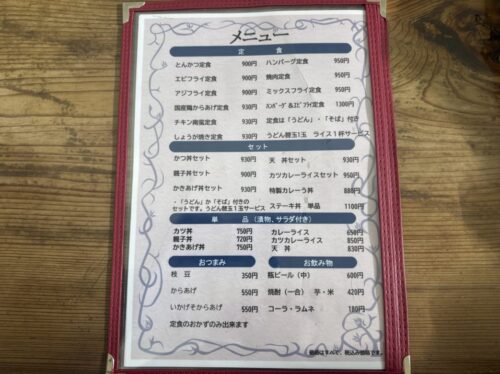 メニュー
定 食
とんかつ定食 900円 ハンバーグ定食 950円
エビフライ定食 900円 焼肉定食 950円
アジフライ定食 900円 ミックスフライ定食 950円
国産鶏からあげ定食 930円 ﾊﾝﾊﾞｰｸﾞ&ｴﾋﾞﾌﾗｲ定食 1300円
チキン南蛮定食 930円 定食は「うどん」・「そば」付き
しょうが焼き定食 930円 うどん替玉1玉 ライス1杯サービス
セット
かつ丼セット 930円 天 丼セット 930円
親子丼セット 900円 カツカレーライスセット 950円
かきあげ丼セット 930円 特製カレーう丼 880円
・「うどん」か「そば」付きの
セットです。うどん替玉1玉サービス ステーキ丼 単品 1100円
単 品（漬物、サラダ付き）
カツ丼 750円 カレーライス 650円
親子丼 720円 カツカレーライス 850円
かきあげ丼 750円 天 丼 830円
おつまみ お飲み物
枝 豆 350円 瓶ビール（中） 600円
からあげ 550円 焼酎（一合） 芋・米 420円
いかげそからあげ 550円 コーラ・ラムネ 180円
定食のおかずのみ出来ます
価格はすべて、税込み価格です。